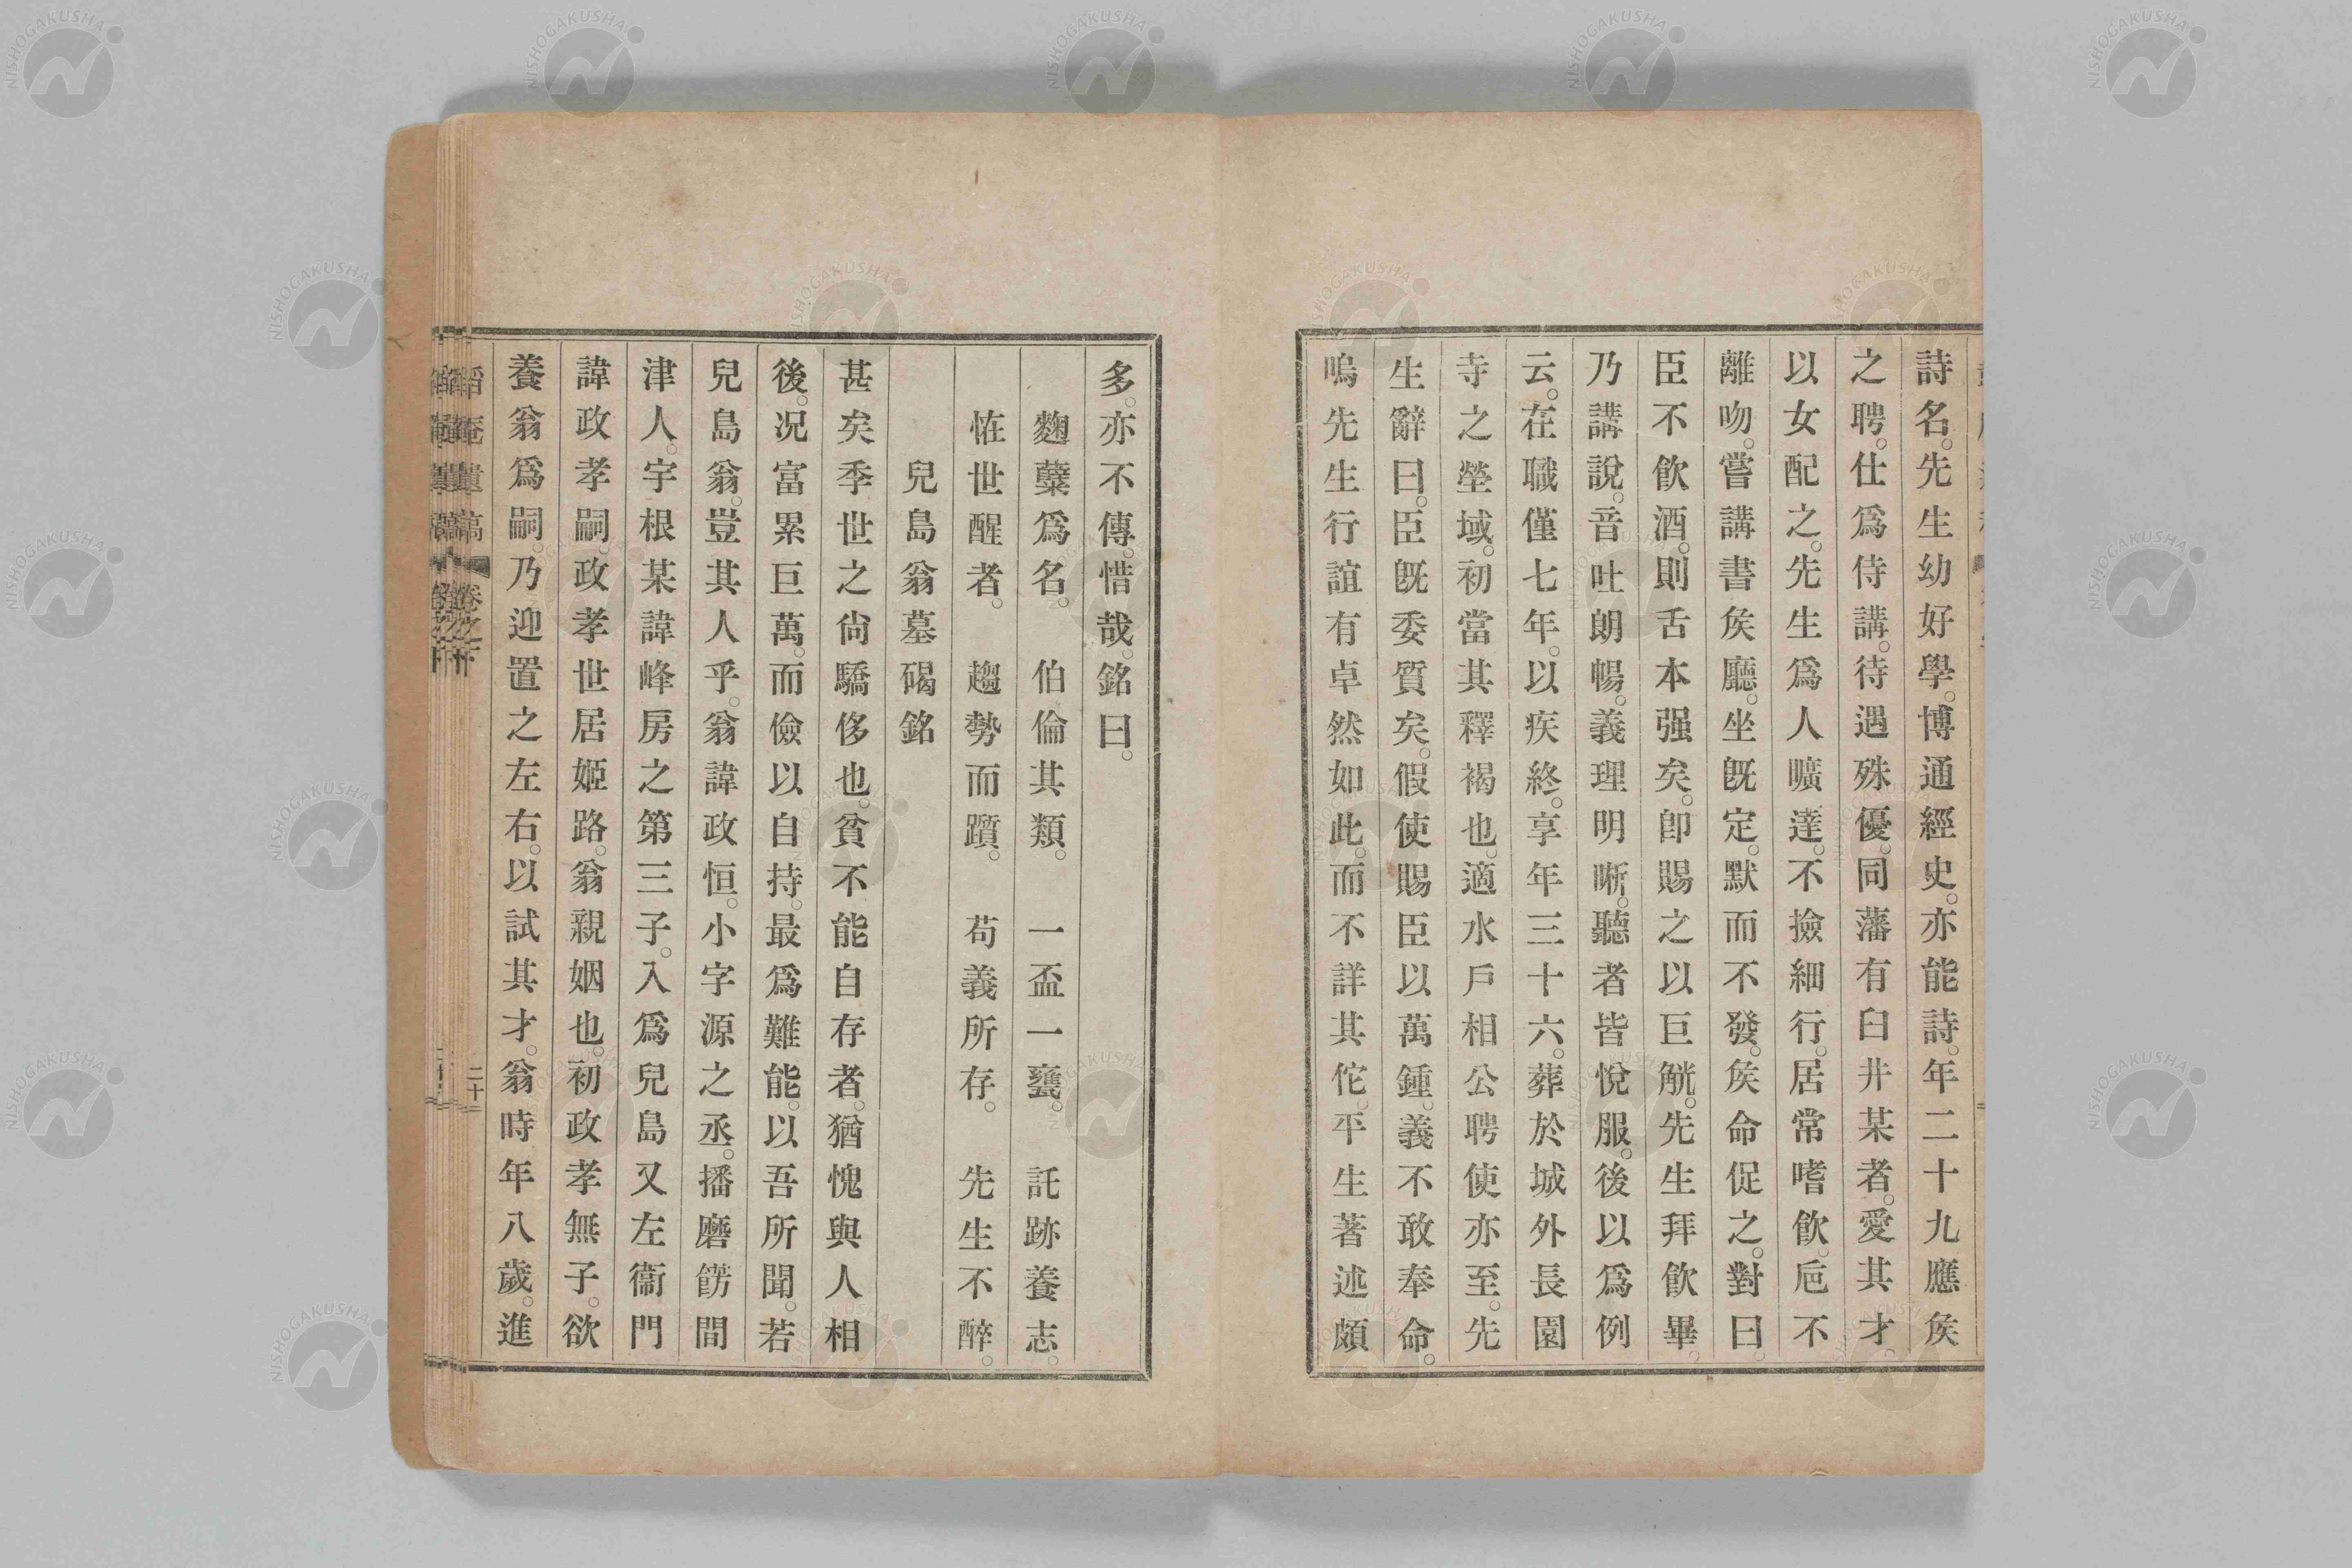 詩名。先生幼好學。博通經史。亦能詩。年二十九應矦
之聘。仕爲侍講。待遇殊優。同藩有臼井某者。愛其才
以女配之。先生爲人曠達。不撿細行。居常嗜飮。巵不
離吻。嘗講書矦廳。坐旣定。默而不發。矦命促之。對曰。
臣不飮酒。則舌本强矣。卽賜之以巨觥。先生拜飮畢。
乃講說。音吐朗暢。義理明晰。聽者皆悅服。後以爲例
云。在職僅七年。以疾終。享年三十六。葬於城外長園
寺之塋域。初當其釋褐也。適水戶相公聘使亦至。先
生辭曰。臣旣委質矣。假使賜臣以萬鍾。義不敢奉命。
嗚先生行誼有卓然如此。而不詳其佗。平生著述頗
多。亦不傳。惜哉。銘曰。
麴糵爲名。　伯倫其類。　一盃一甕。　託跡養志。
恠世醒者。　趨勢而躓。　苟義所存。　先生不醉。
兒島翁墓碣銘
甚矣季世之尙驕侈也。貧不能自存者。猶愧與人相
後。况富累巨萬。而儉以自持。最爲難能。以吾所聞。若
兒島翁。豈其人乎。翁諱政恒。小字源之丞。播磨餝間
津人。字根某諱峰房之第三子。入爲兒島又左衞門
諱政孝嗣。政孝世居姬路。翁親姻也。初政孝無子。欲
養翁爲嗣。乃迎置之左右。以試其才。翁時年八歲。進
稻庵遺稿　卷之十　二十